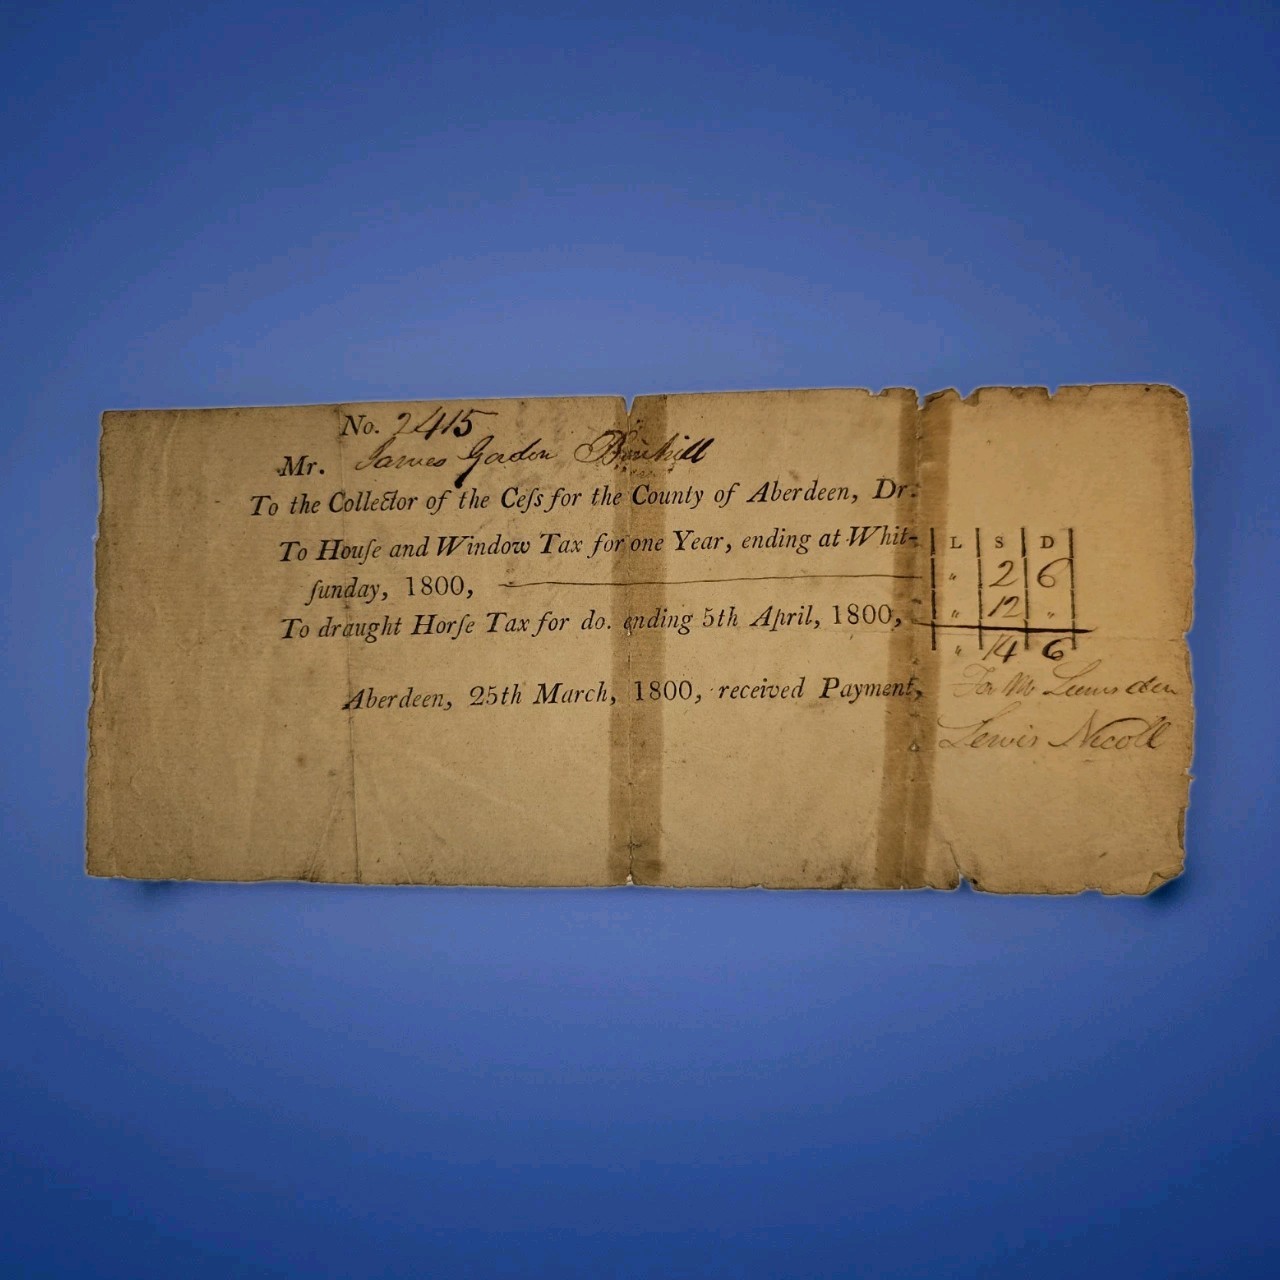 No. 2415
Mr. James Gordon
To the Collector of the Ceſs for the County of Aberdeen, Dr.
To Houſe and Window Tax for one Year, ending at Whit-
ſunday, 1800,
To draught Horſe Tax for do. ending 5th April, 1800,
L S D
" 2 6
" 12 "
" 14 6
Aberdeen, 25th March, 1800, received Payment,
For Mr Lumsden
Lewis Nicoll